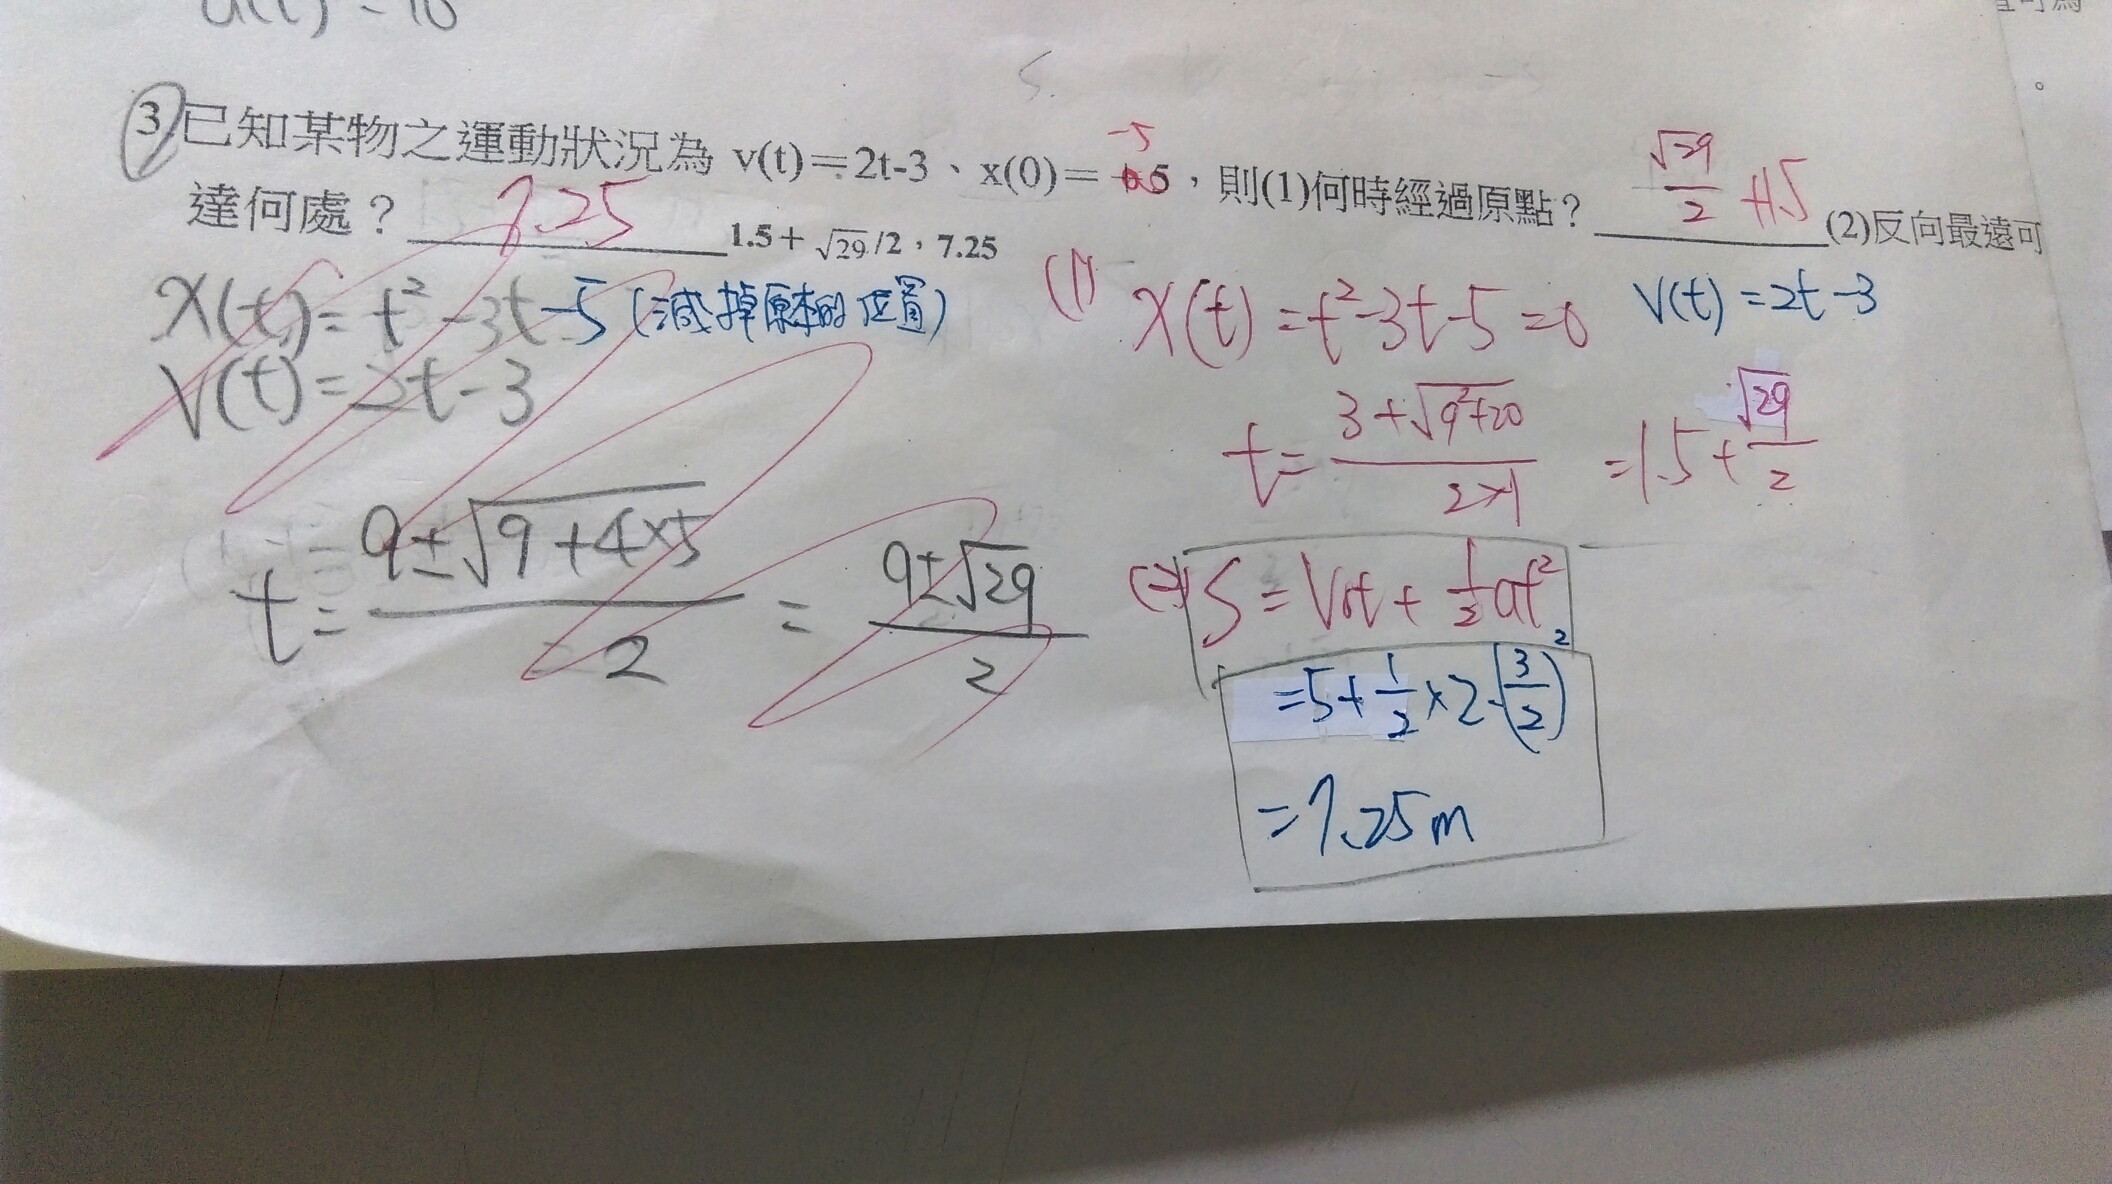 a(t) = 10
3.已知某物之運動狀況為 v(t)＝2t-3、x(0)＝ -5 5，則(1)何時經過原點？ √29/2 +1.5 (2)反向最遠可
達何處？ 7.25 1.5＋ √29 /2，7.25
x(t) = t² -3t -5 (減掉原本的位置)
v(t) = 2t - 3
t = 9±√9+4×5 / 2 = 9±√29 / 2
(1) x(t) = t² -3t -5 = 0 v(t) = 2t -3
t = 3+√9²+20 / 2×1 = 1.5 + √29 / 2
(2) S = V0t + 1/2 at²
= 5 + 1/2 × 2 · (3/2)²
= 7.25 m